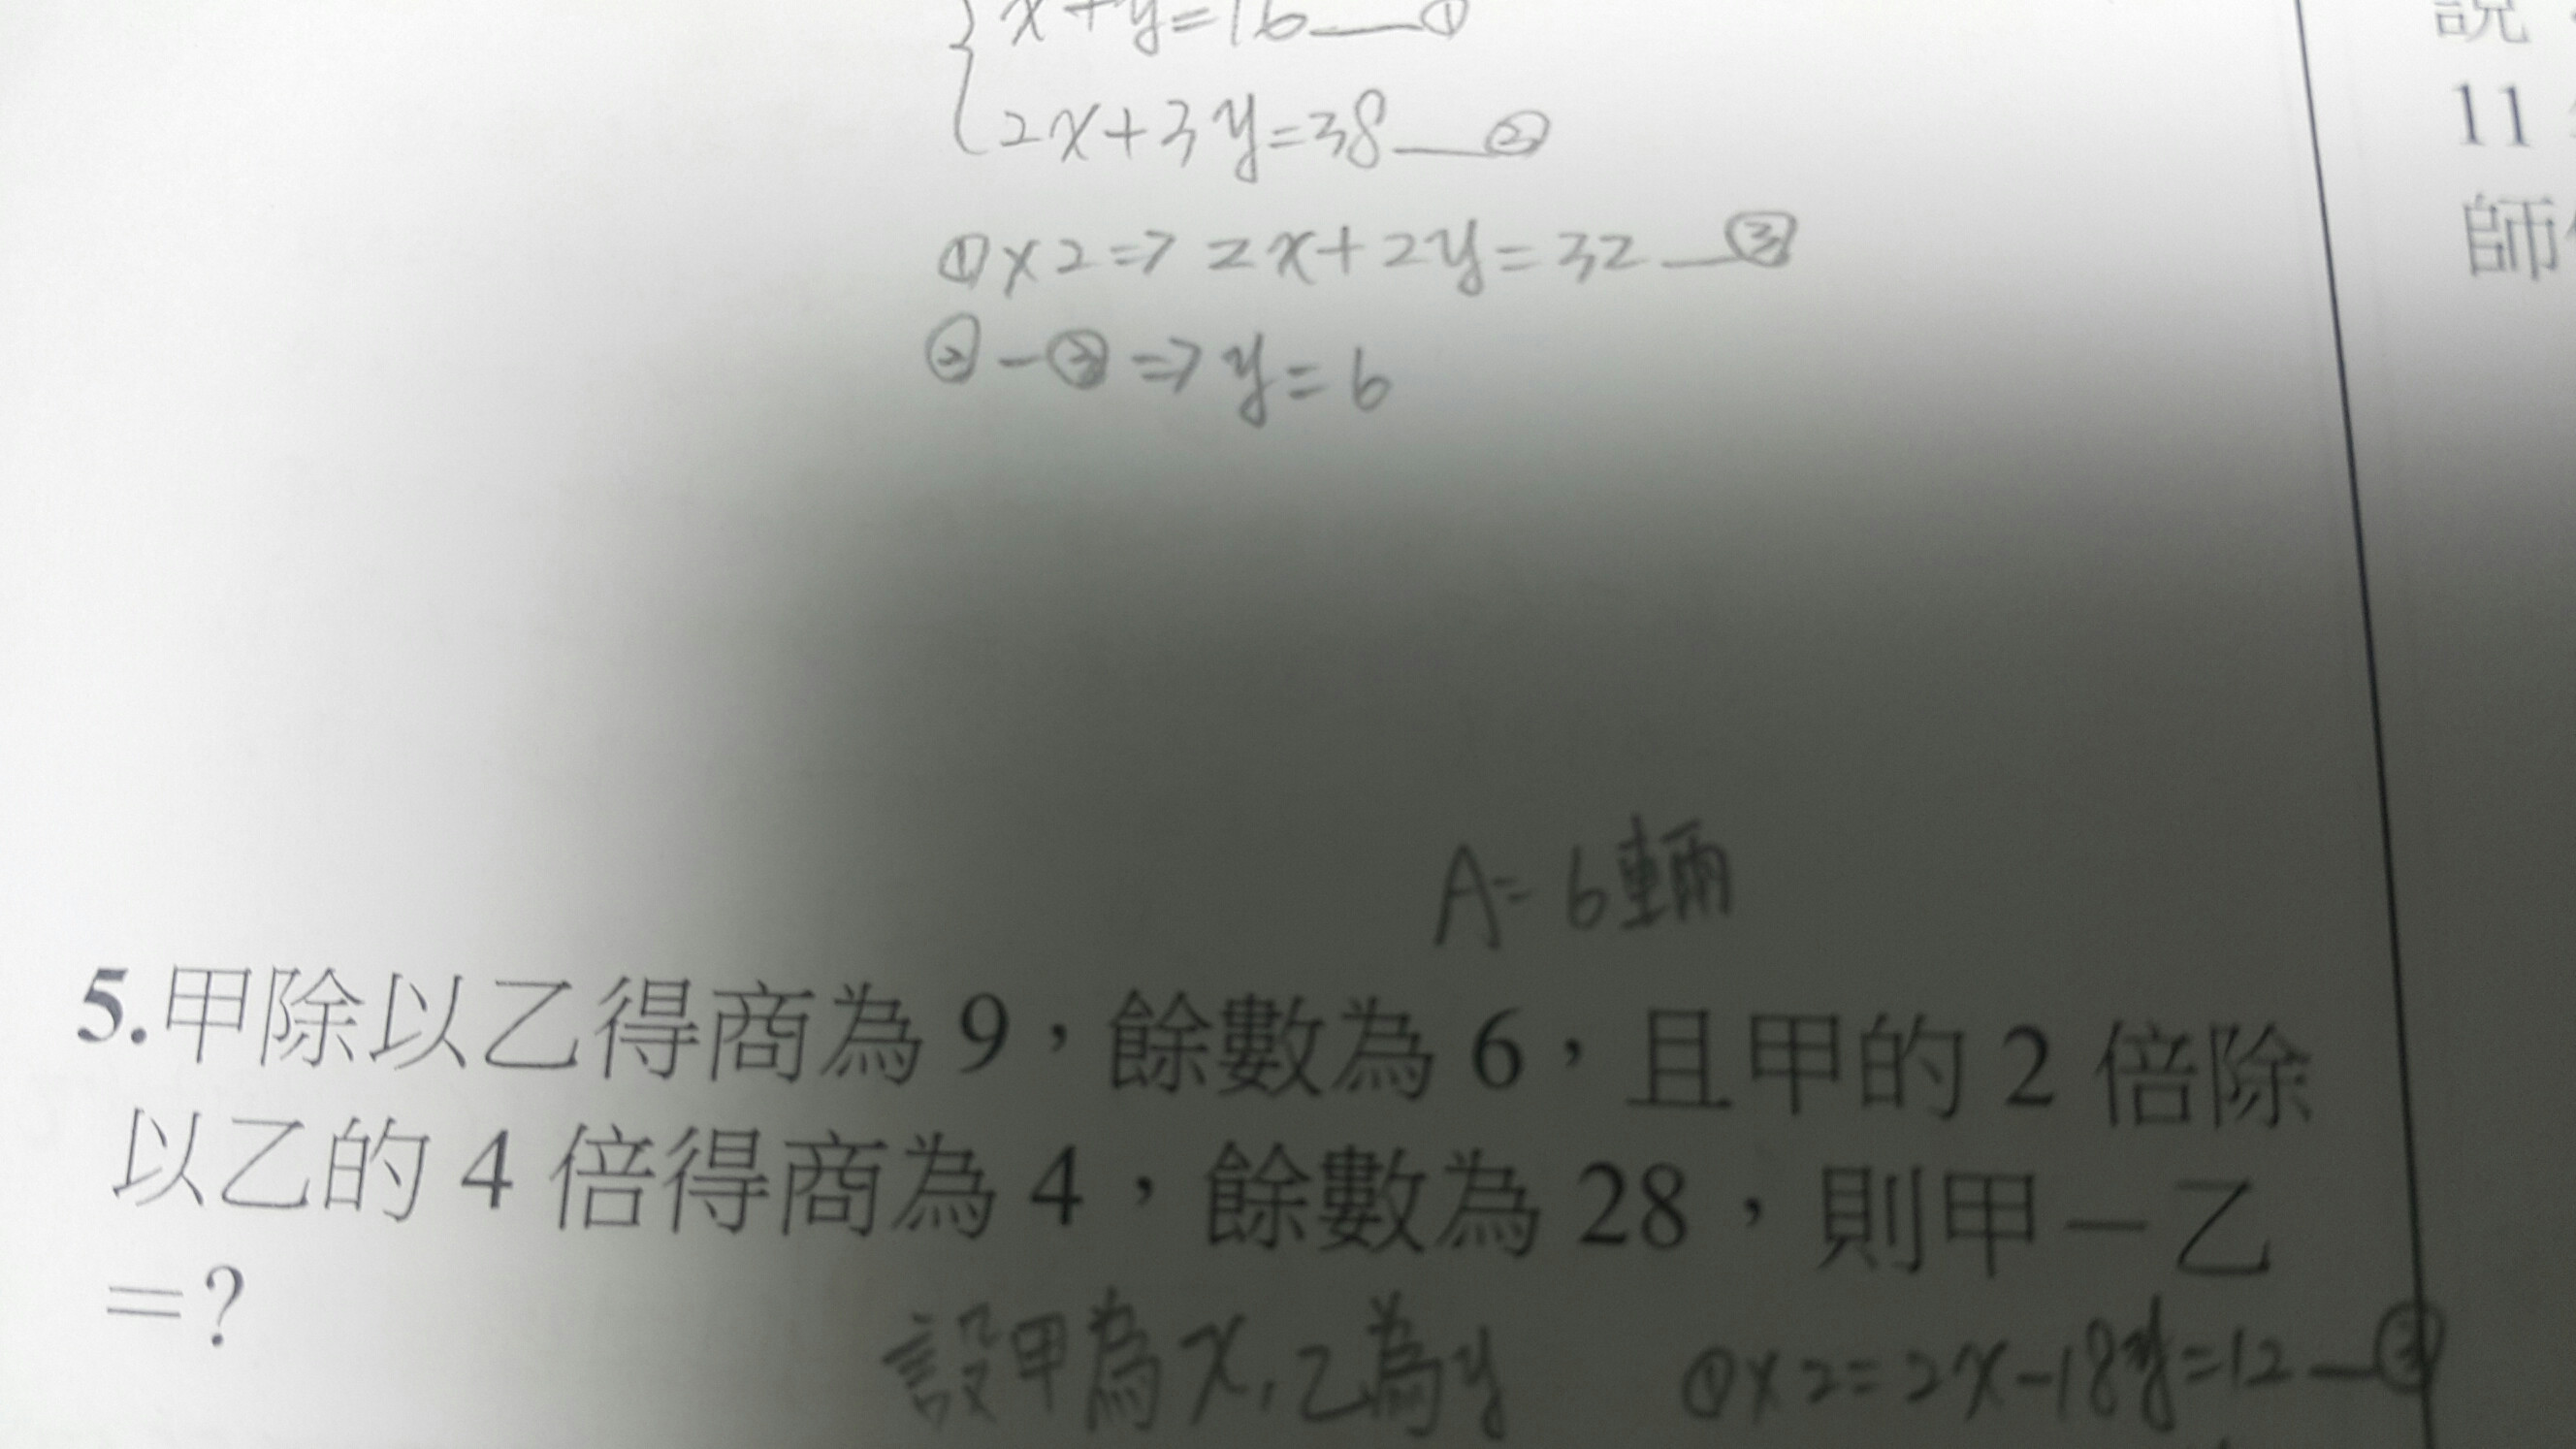 x+y=16—①
2x+3y=38—②
①×2=>2x+2y=32—③
②-③=>y=6
A=6輛
5.甲除以乙得商為9，餘數為6，且甲的2倍除
以乙的4倍得商為4，餘數為28，則甲－乙
=?
設甲為x,乙為y
①×2=2x-18y=12—③
說
11
師